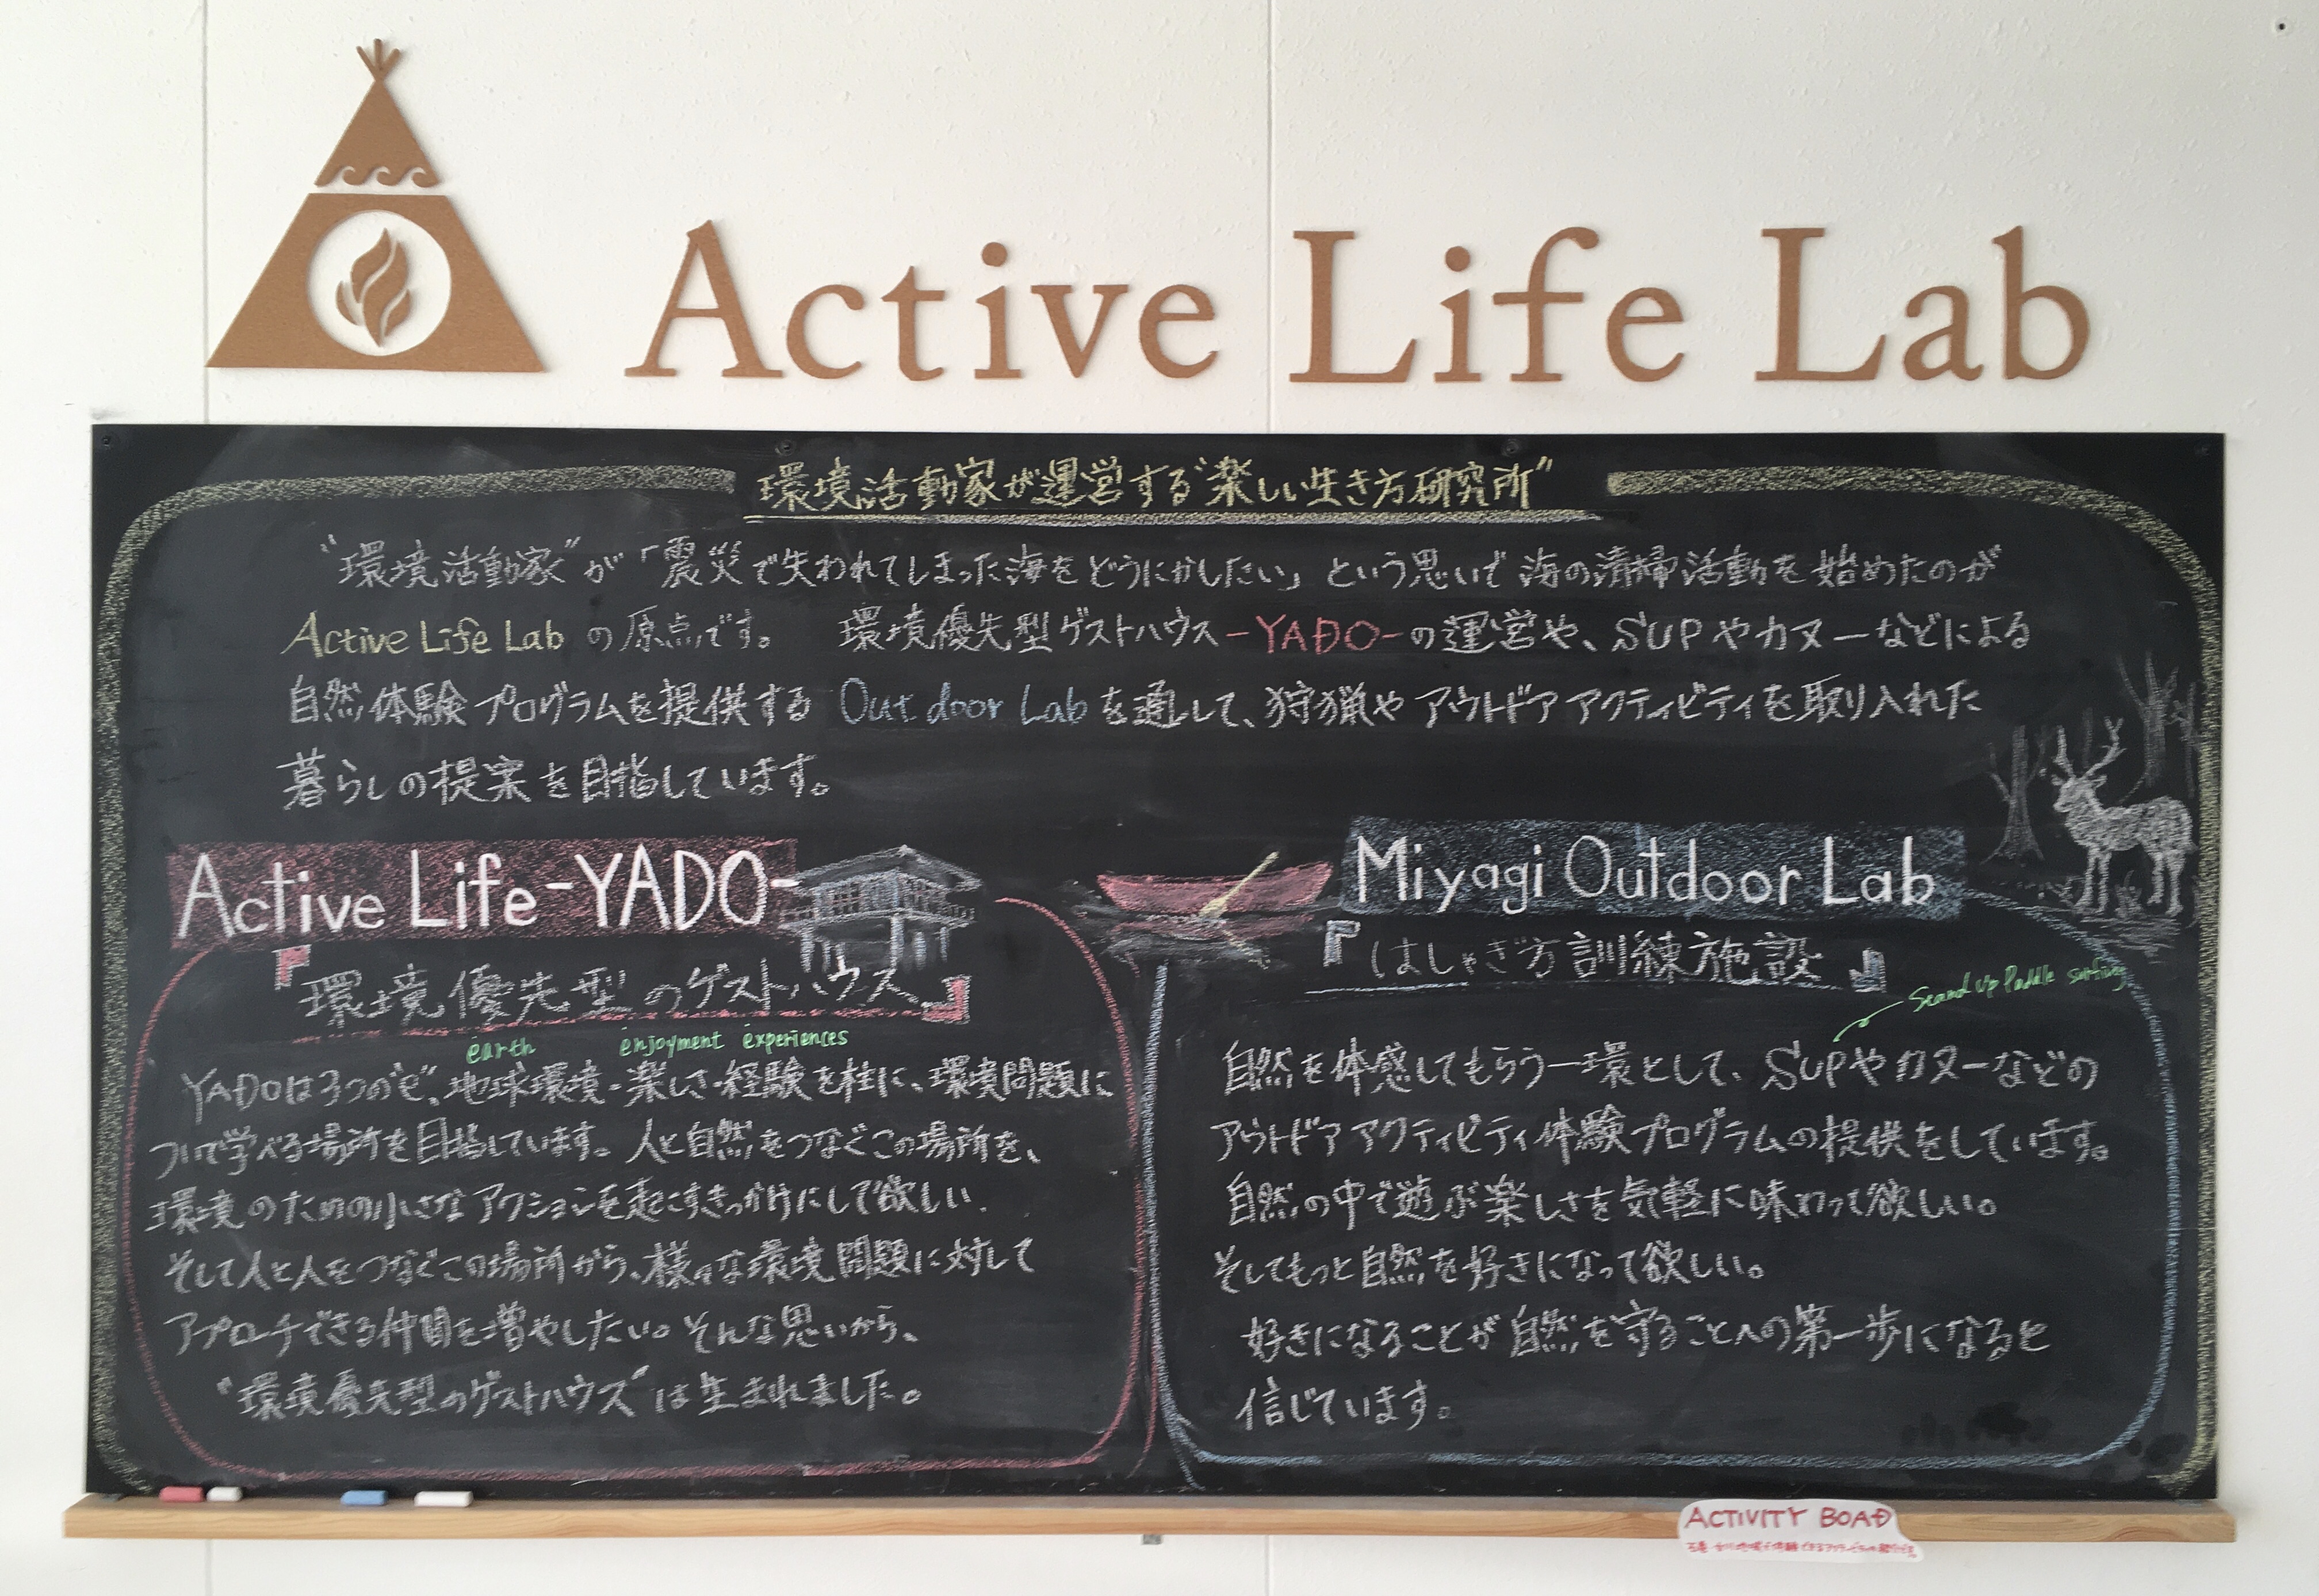 Active Life Lab
環境活動家が運営する“楽しい生き方研究所”
“環境活動家”が「震災で失われてしまった海をどうにかしたい」という思いで海の清掃活動を始めたのが
Active Life Labの原点です。 環境優先型ゲストハウス-YADO-の運営や、SUPやカヌーなどによる
自然体験プログラムを提供するOutdoor Labを通して、狩猟やアウトドアアクティビティを取り入れた
暮らしの提案を目指しています。
Active Life-YADO-
『環境優先型のゲストハウス』
earth enjoyment experiences
YADOは3つの“e”、地球環境・楽しさ・経験を柱に、環境問題に
ついて学べる場所を目指しています。人と自然をつなぐこの場所を、
環境のための小さなアクションを起こすきっかけにして欲しい.
そして人と人をつなぐこの場所から、様々な環境問題に対して
アプローチできる仲間を増やしたい。そんな思いから、
“環境優先型のゲストハウス”は生まれました。
Miyagi Outdoor Lab
『はしゃぎ方訓練施設』
Stand Up Paddle surfing
自然を体感してもらう一環として、SUPやカヌーなどの
アウトドアアクティビティ体験プログラムの提供をしています。
自然の中で遊ぶ楽しさを気軽に味わって欲しい。
そしてもっと自然を好きになって欲しい。
好きになることが自然を守ることへの第一歩になると
信じています。
ACTIVITY BOAD